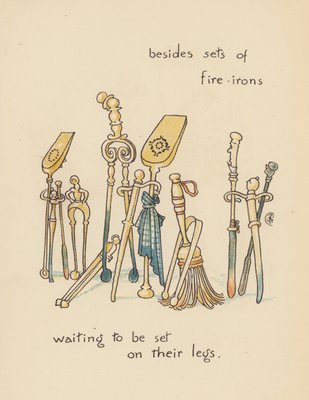 besides sets of
fire-irons
waiting to be set
on their legs.